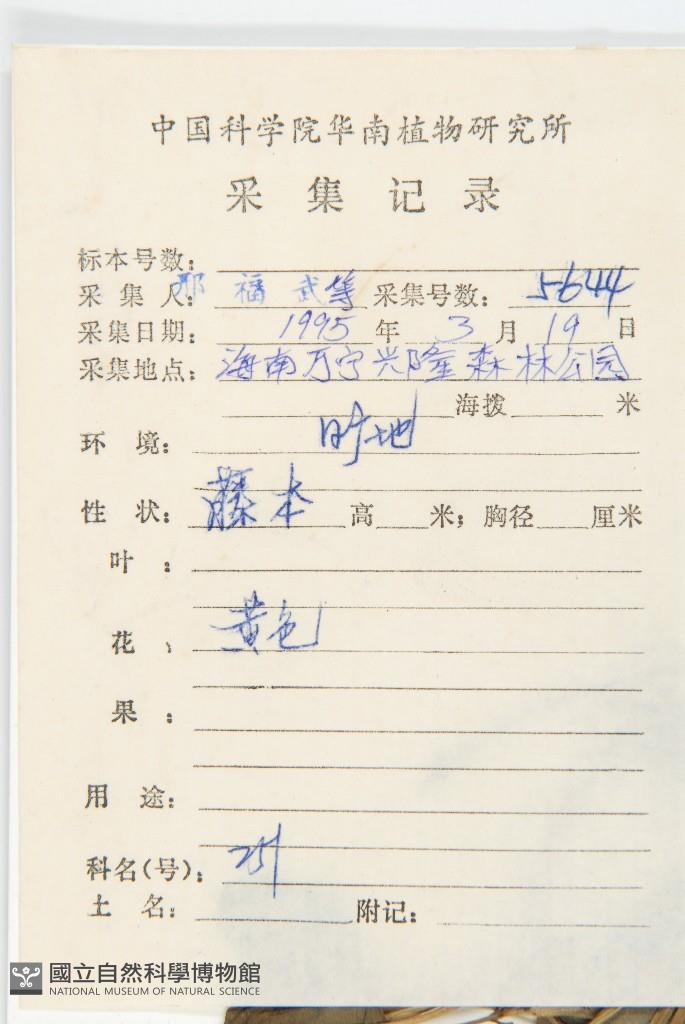 中国科学院华南植物研究所
采集记录
标本号数：
采集人：邢福武等 采集号数：5644
采集日期：1995年3月19日
采集地点：海南万宁兴隆森林公园
海拨 米
环境：旷地
性状：藤本 高 米；胸径 厘米
叶：
花：黄色
果：
用途：
科名(号)：251
土名： 附记：
國立自然科學博物館
NATIONAL MUSEUM OF NATURAL SCIENCE